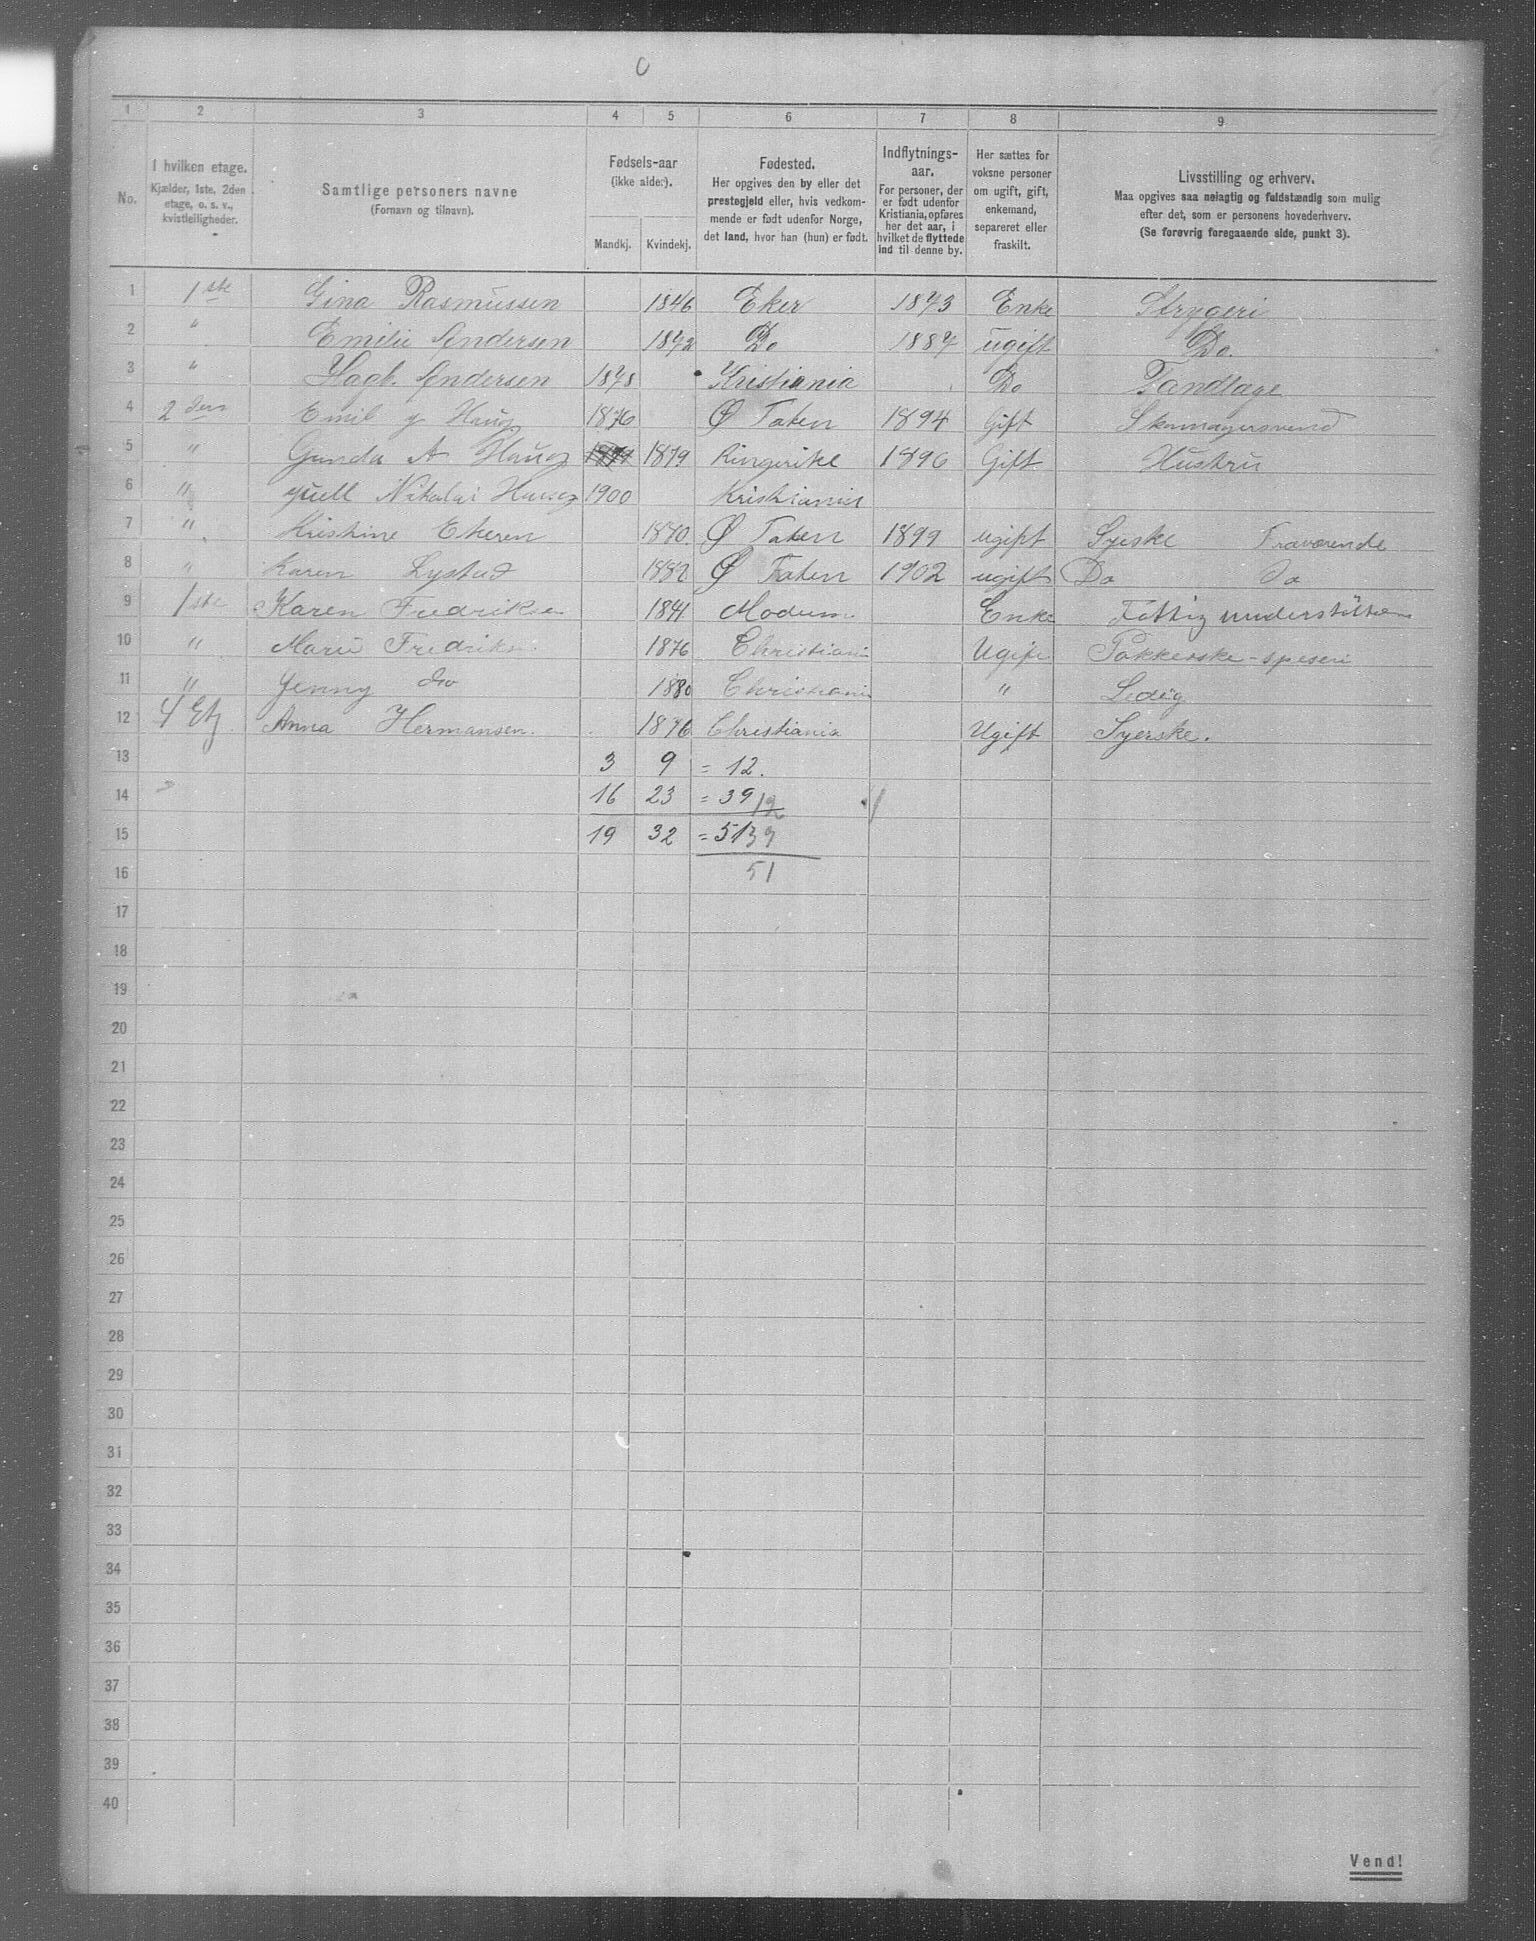 1 2 3 4 5 6 7 8 9
No.
I hvilken etage.
Kjælder, 1ste, 2den
etage, o. s. v.,
kvistleiligheder.
Samtlige personers navne
(Fornavn og tilnavn).
Fødsels-aar
(ikke alder).
Mandkj. Kvindekj.
Fødested.
Her opgives den by eller det
prestegjeld eller, hvis vedkom-
mende er født udenfor Norge,
det land, hvor han (hun) er født.
Indflytnings-
aar.
For personer, der
er født udenfor
Kristiania, opføres
her det aar, i
hvilket de flyttede
ind til denne by.
Her sættes for
voksne personer
om ugift, gift,
enkemand,
separeret eller
fraskilt.
Livsstilling og erhverv.
Maa opgives saa nøiagtig og fuldstændig som mulig
efter det, som er personens hovederhverv.
(Se forøvrig foregaaende side, punkt 3).
1 1ste Gina Rasmussen 1846 Eker 1873 Enke Strygeri
2 " Emilie Andersen 1872 Do 1887 ugift Do.
3 " Hagb. Andersen 1878 Kristiania Do Tandlæge
4 2den Emil Haug 1876 Ø Toten 1894 Gift Skomagersvend
5 " Gunda A Haug 1879 1879 Ringerike 1896 Gift Hustru
6 " Nikolai Haug 1900 Kristiania
7 " Kristine Ekeren 1870. Ø Toten 1899 ugift Syeske Fraværende
8 " Karen Lystad 1882 Ø Toten 1902 ugift Do Do
9 1ste Karen Fredriksen 1841 Modum Enke Fattig understøttes
10 " Marie Fredriks. 1876 Christiania Ugift Pakkerske - speseri
11 " Jenny do 1880 Christiania " Ledig
12 4 Etg Anna Hermansen. 1876 Christiania Ugift Syerske.
13 3 9 = 12.
14 16 23 = 39 12
15 19 32 = 51 39
16 51
17
18
19
20
21
22
23
24
25
26
27
28
29
30
31
32
33
34
35
36
37
38
39
40
Vend!